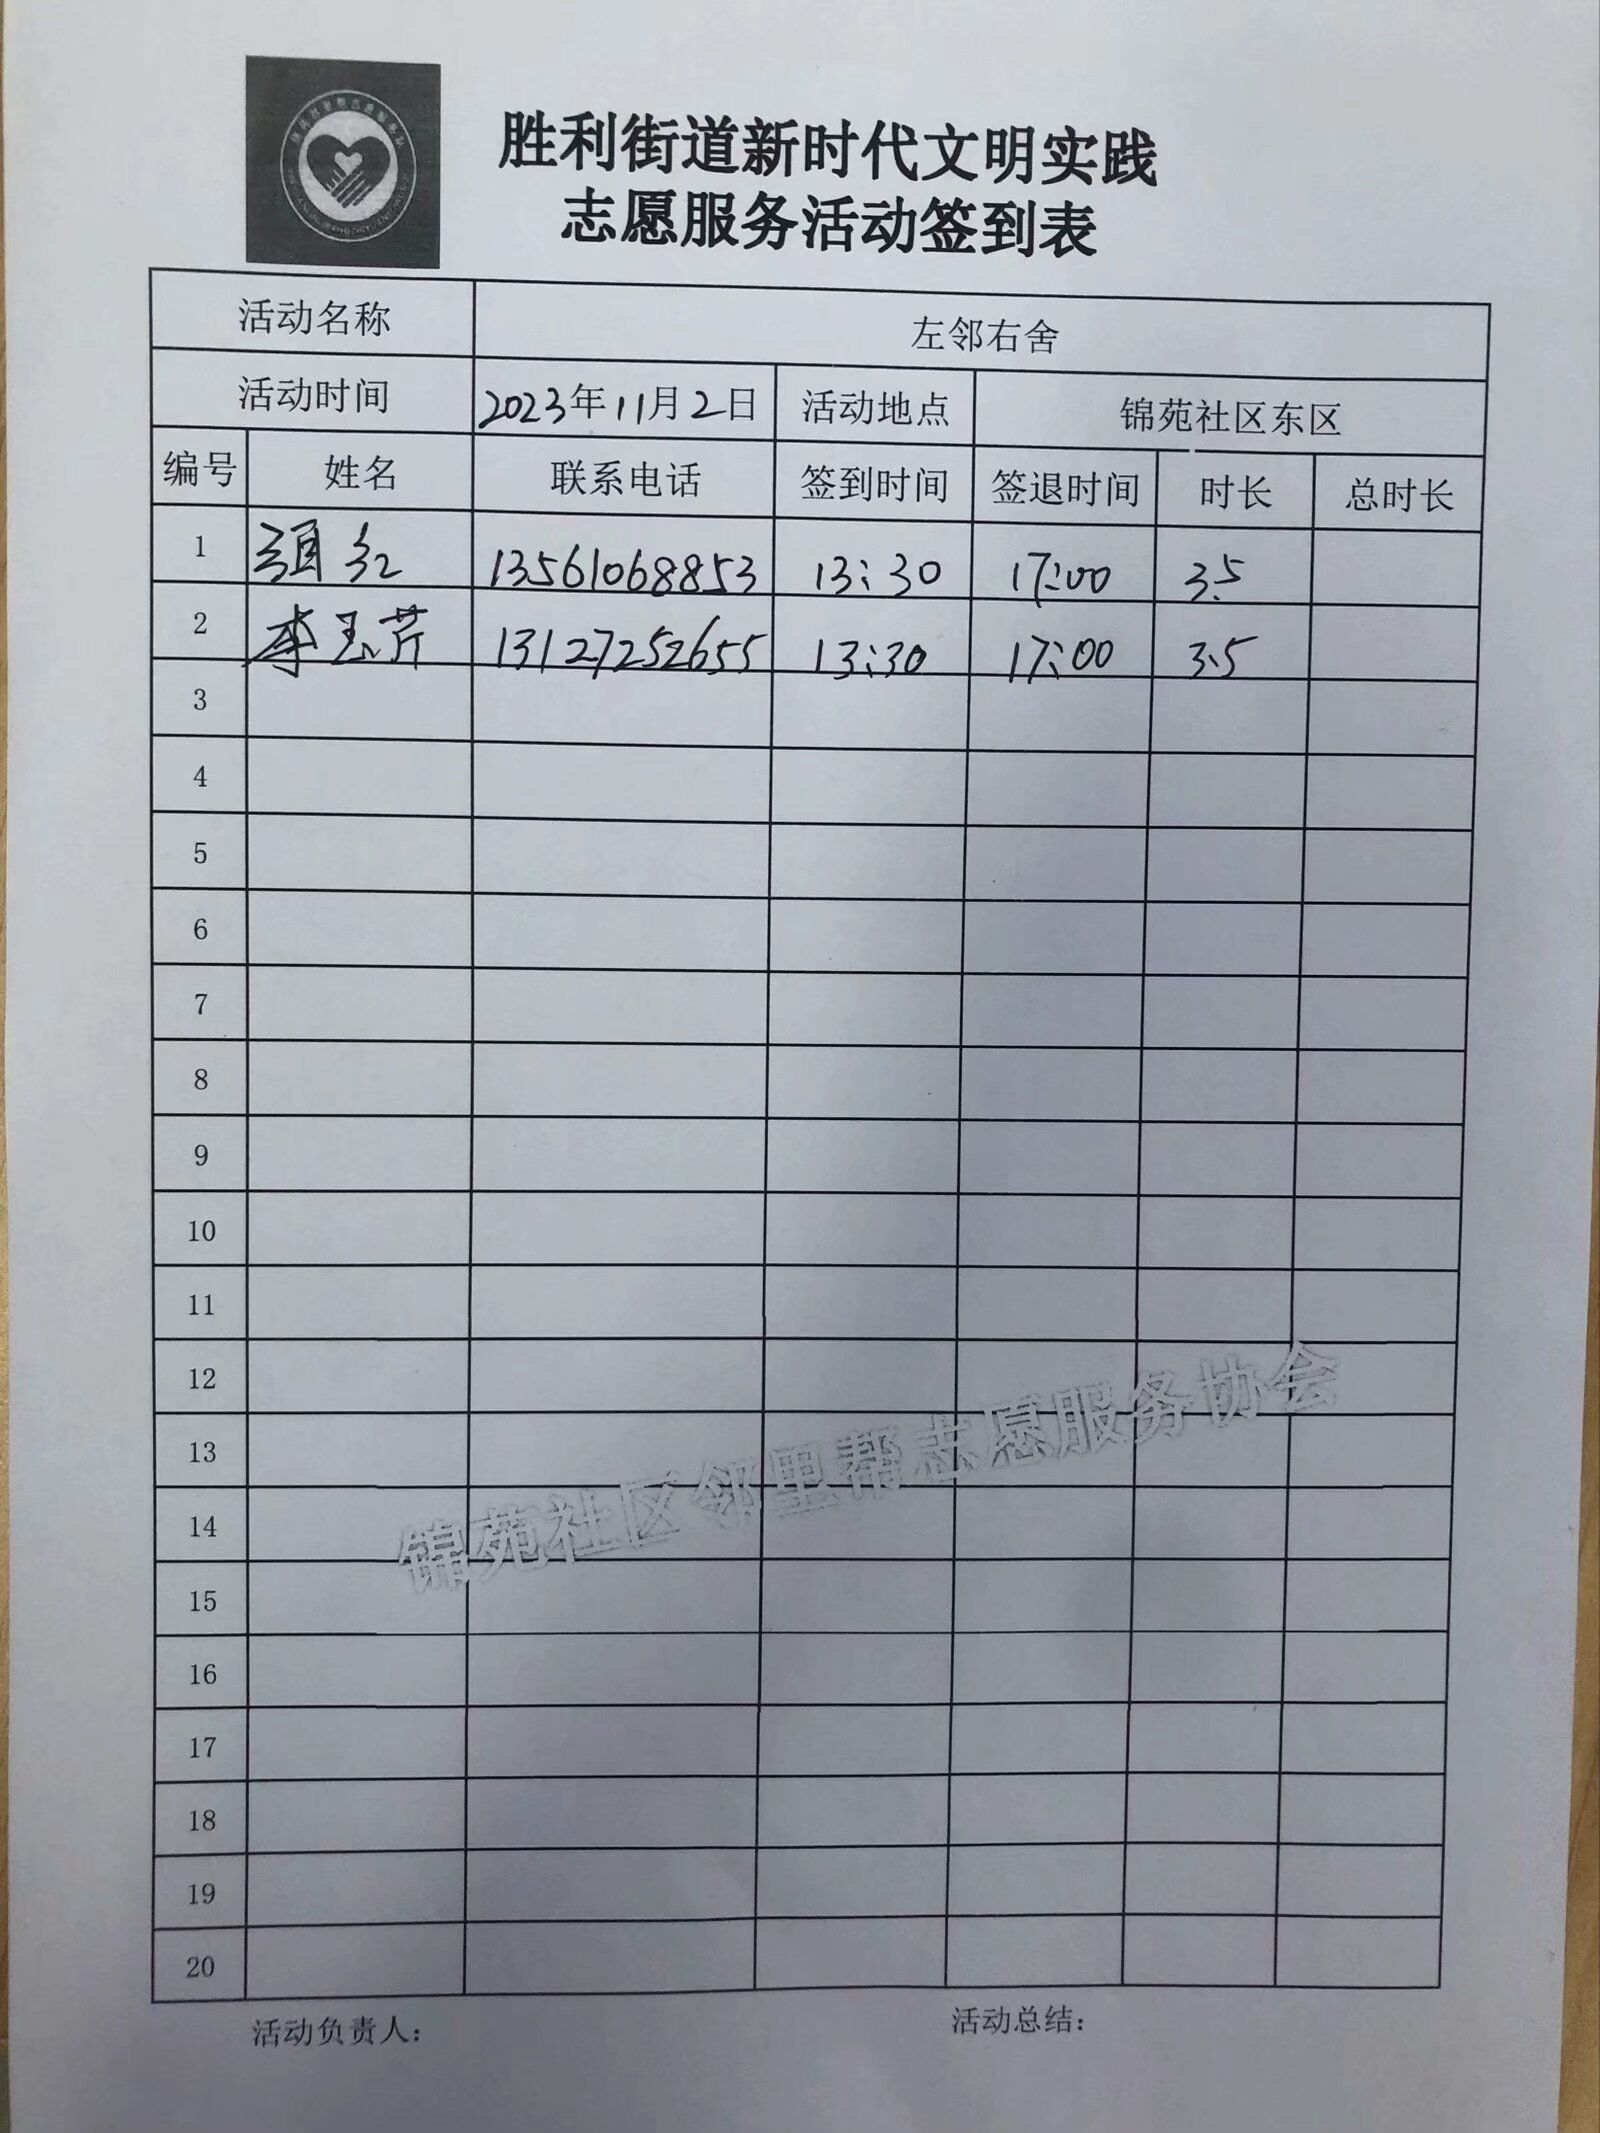 胜利街道新时代文明实践
志愿服务活动签到表
活动名称 左邻右舍
活动时间 2023年11月2日 活动地点 锦苑社区东区
编号 姓名 联系电话 签到时间 签退时间 时长 总时长
1 红 13561068853 13:30 17:00 3.5
2 李玉芹 13127252655 13:30 17:00 3.5
3
4
5
6
7
8
9
10
11
12
13
14
15
16
17
18
19
20
锦苑社区邻里帮志愿服务协会
活动负责人: 活动总结: